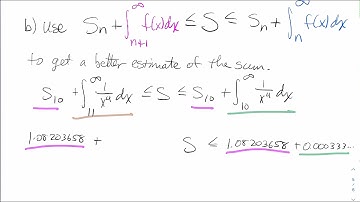 b) Use Sn + ∫_{n+1}^{∞} f(x)dx ≤ S ≤ Sn + ∫_{n}^{∞} f(x)dx
to get a better estimate of the sum.
S10 + ∫_{11}^{∞} 1/x⁴ dx ≤ S ≤ S10 + ∫_{10}^{∞} 1/x⁴ dx
1.08203658 + S ≤ 1.08203658 + 0.000333...